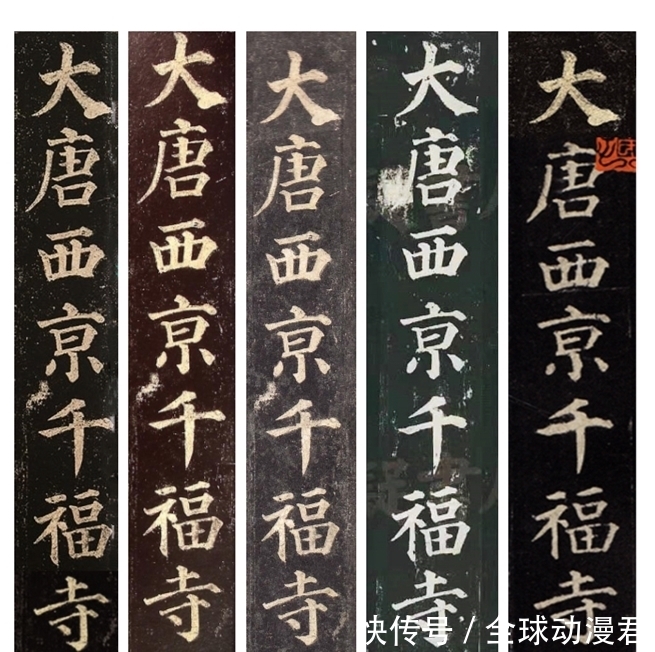 大唐西京千福寺
大唐西京千福寺
大唐西京千福寺
大唐西京千福寺
大唐西京千福寺
快传号 / 全球动漫君